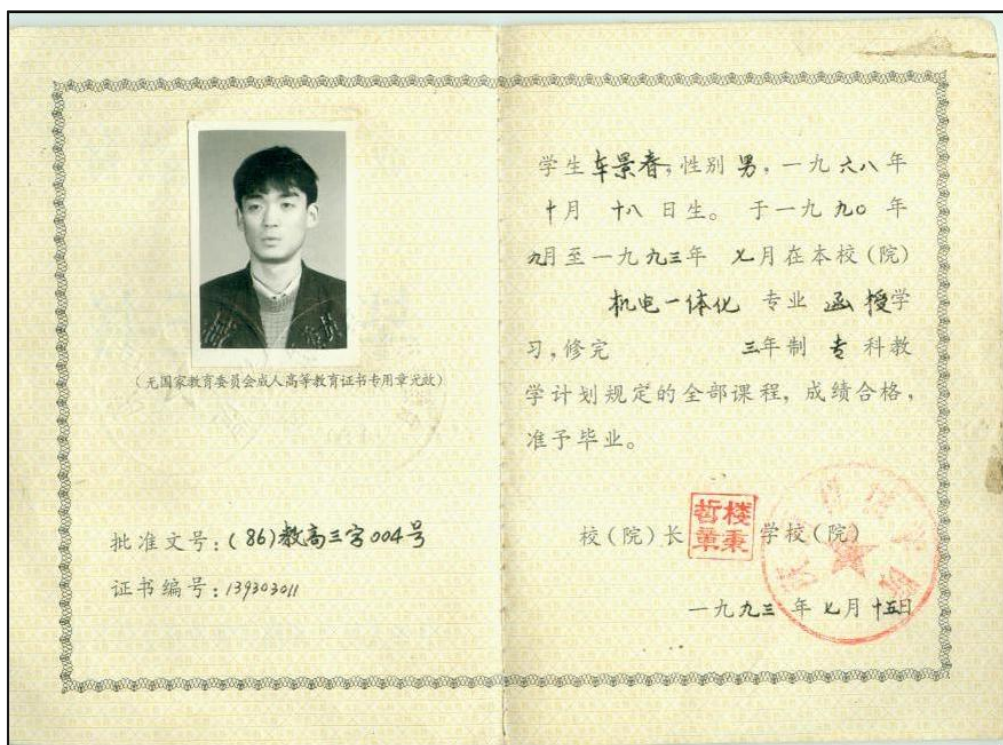 (无国家教育委员会成人高等教育证书专用章无效)
批准文号:(86)教高三字004号
证书编号:139303011
学生车景春,性别男,一九六八年
十月 十八 日生。于一九九〇年
九月至一九九三年 七月在本校(院)
机电一体化 专业 函授学
习,修完 三年制 专 科教
学计划规定的全部课程,成绩合格,
准予毕业。
校(院)长 学校(院)
一九九三年七月十五日